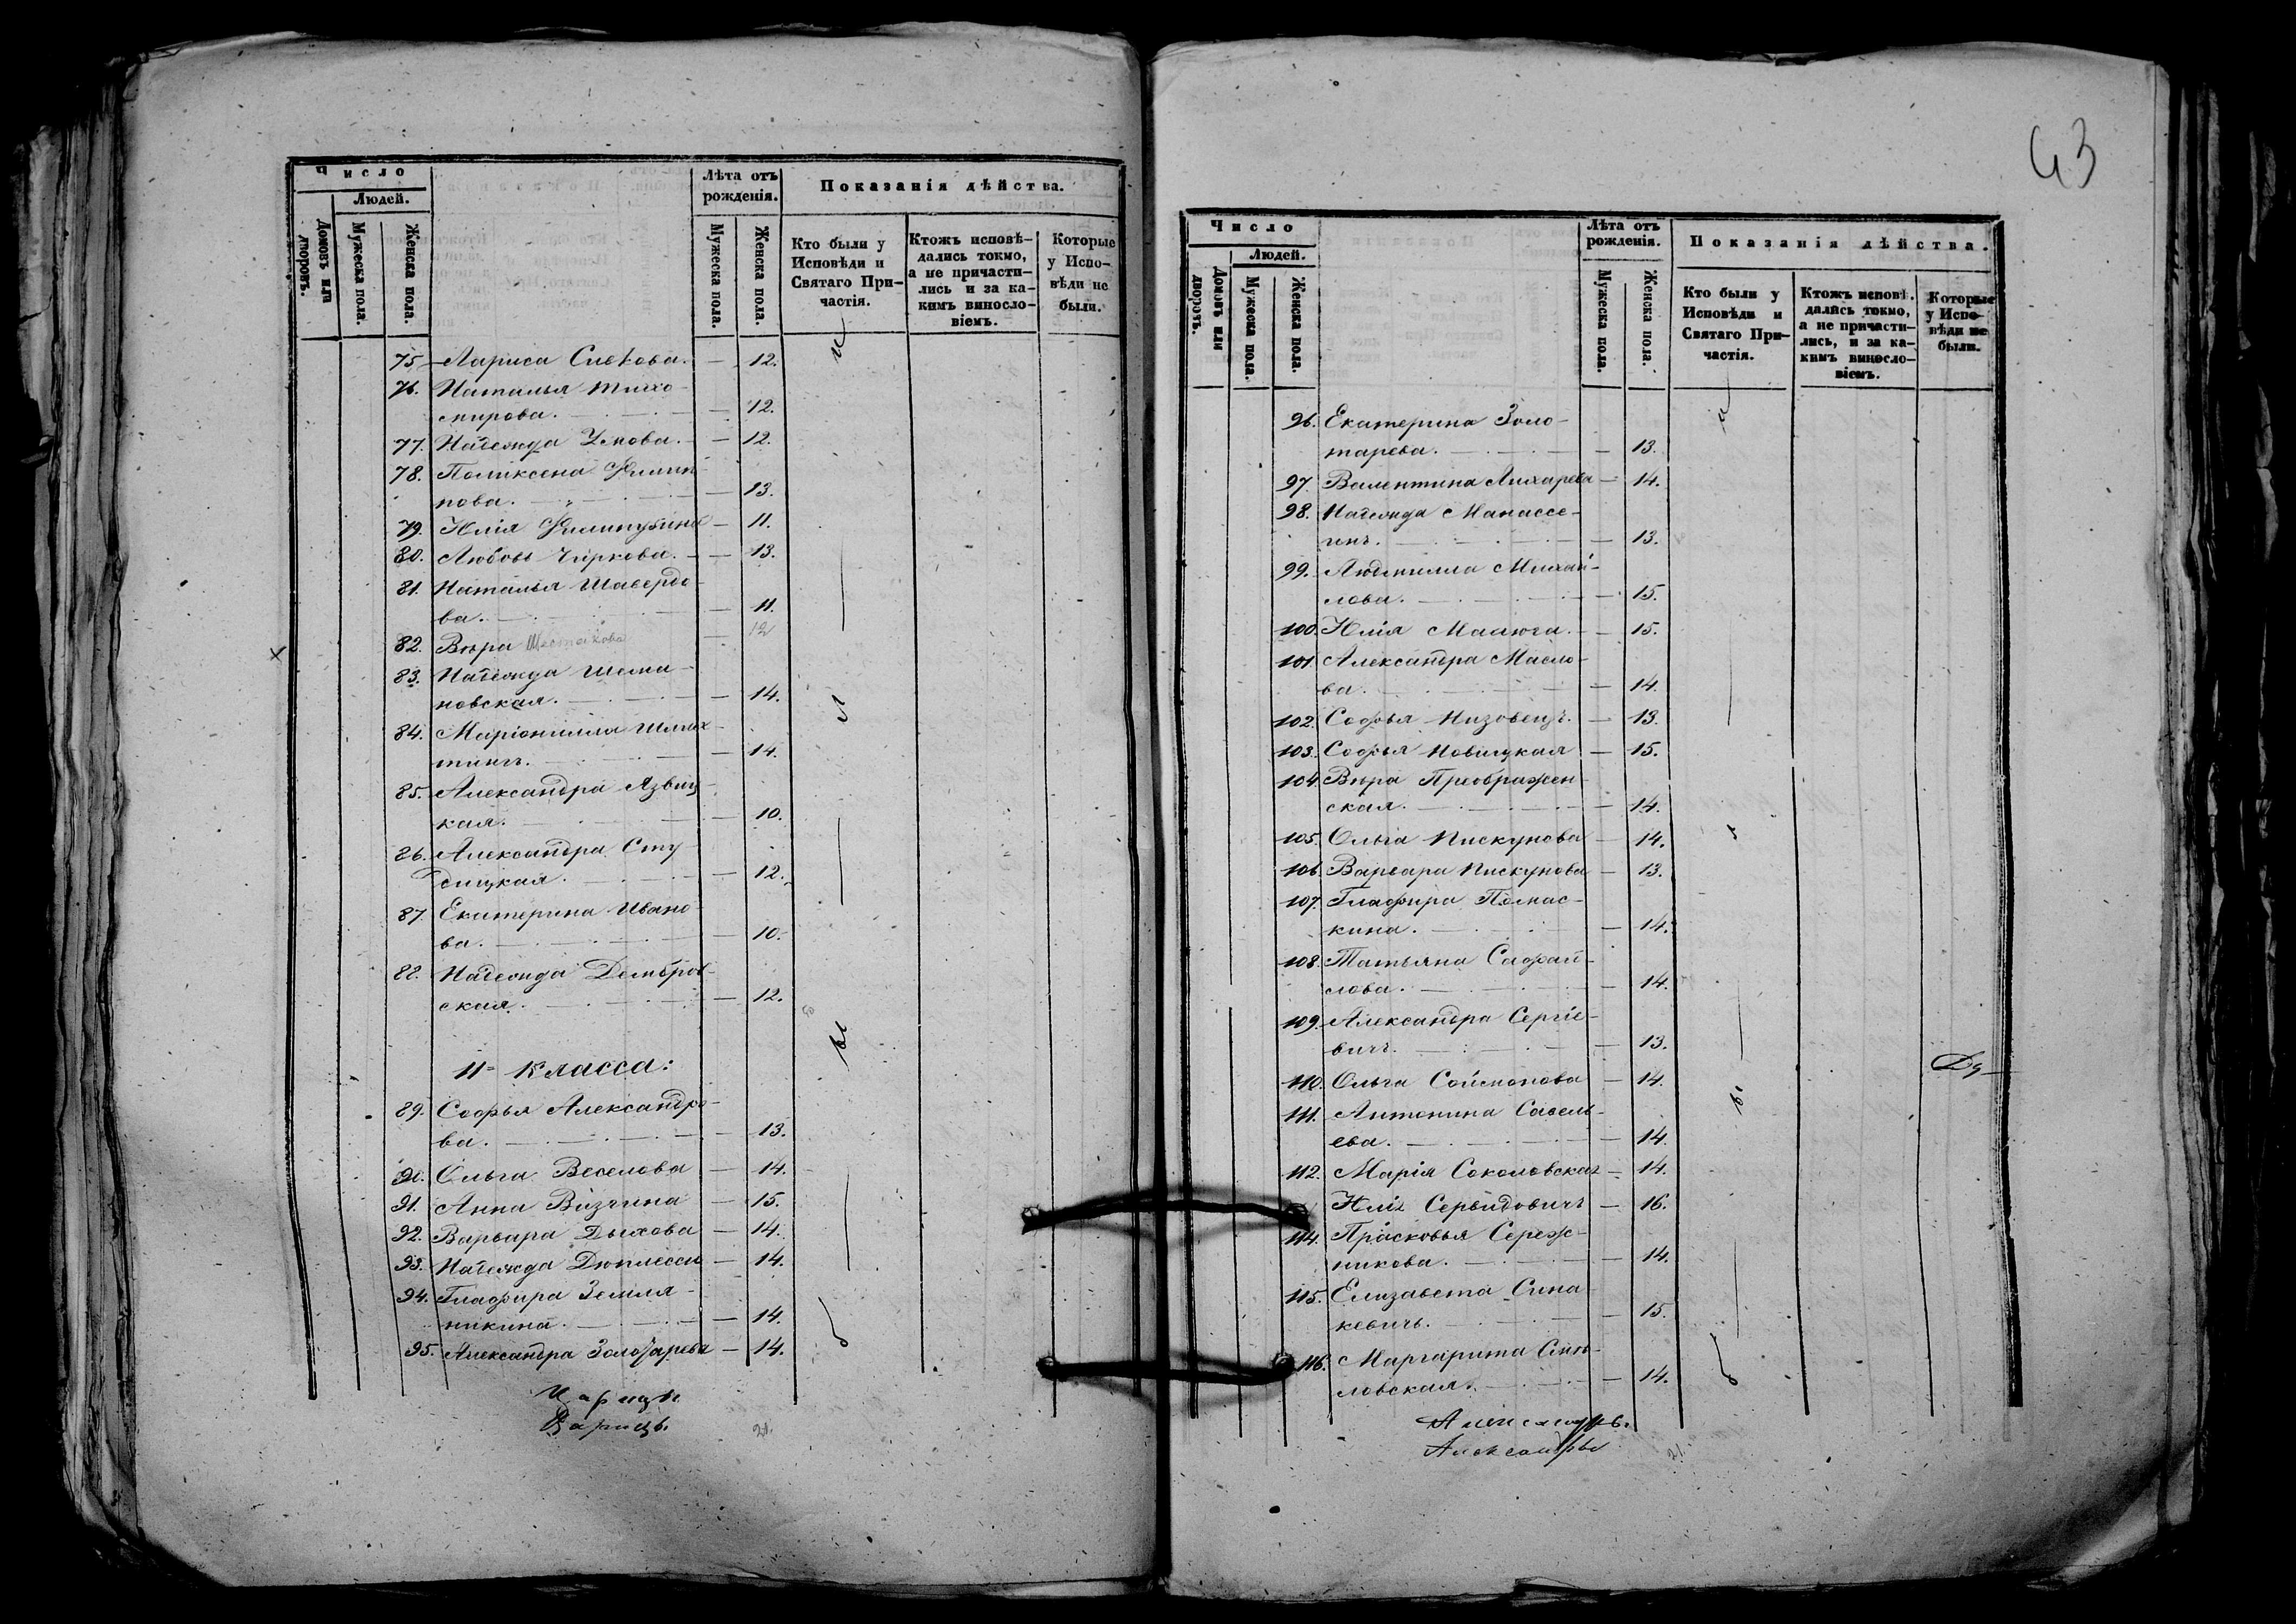 43
Число
Людей.
Домовъ или дворовъ.
Мужеска пола.
Женска пола.
Лѣта отъ рожденія.
Мужеска пола.
Женска пола.
Показанія дѣйства.
Кто были у Исповѣди и Святаго Причастія.
Ктожъ исповѣдались токмо, а не причастились и за какимъ винословіемъ.
Которые у Исповѣди не были.
75 Лариса Сивкова. — 12.
76. Наталья Тихо-
мирова. — 12.
77. Надежда Умова. — 12.
78. Поликсена Филип-
пова. — 13.
79. Юлія — 11.
80. Любовь Чиркова. — 13.
81. Наталья Шавердо-
ва. — 11.
82. Вѣра Шестакова — 12
83. Надежда Шема-
новская. — 14.
84. Маріонилла
— 14.
85. Александра Язвиц-
кая. — 10.
86. Александра Сту-
дицкая. — 12.
87. Екатерина Ивано-
ва. — 10.
88. Надежда Домбров-
ская. — 12.
II класса:
89. Софья Александро-
ва. — 13.
90. Ольга Веселова — 14.
91. Анна Визгина — 15.
92. Варвара Дыхова — 14.
93. Надежда Дюплесси — 14.
94. Глафира Земля-
никина. — 14.
95. Александра Золотарева — 14.
21.
Число
Людей.
Домовъ или дворовъ.
Мужеска пола.
Женска пола.
Лѣта отъ рожденія.
Мужеска пола.
Женска пола.
Показанія дѣйства.
Кто были у Исповѣди и Святаго Причастія.
Ктожъ исповѣ. дались токмо, а не причастились, и за какимъ винословіемъ.
Которые у Исповѣди не были.
96. Екатерина Золо-
тарева. — 13.
97. Валентина Лихарева — 14.
98. Надежда Манассе-
инъ. — 13.
99. Людмилла Михай-
лова. — 15.
100. Юлія Малюга. — 15.
101. Александра Масло-
ва. — 14.
102. Софья Низовецъ. — 13.
103. Софья Новицкая — 15.
104. Вѣра Преображен-
ская. — 14.
105. Ольга Пискунова — 14.
106. Варвара Пискунова — 13.
107. Глафира Помас-
кина. — 14.
108. Татьяна Сафай-
лова. — 14.
109. Александра Сергіе-
вичъ. — 13.
110. Ольга Соймонова — 14.
111. Антонина Савель-
ева. — 14.
112. Марія Соколовская — 14.
Юлія Сервидовичъ — 16.
114. Прасковья Сереж-
никова. — 14.
115. Елизавета Сина-
кевичъ. — 15.
116. Маргарита Сѣн-
ловская. — 14.
Александръ
21.